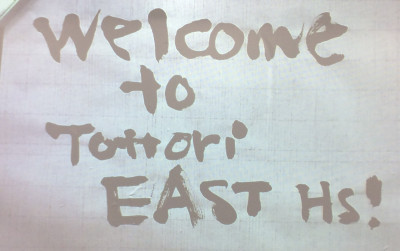 Welcome
to
Tottori
EAST HS!